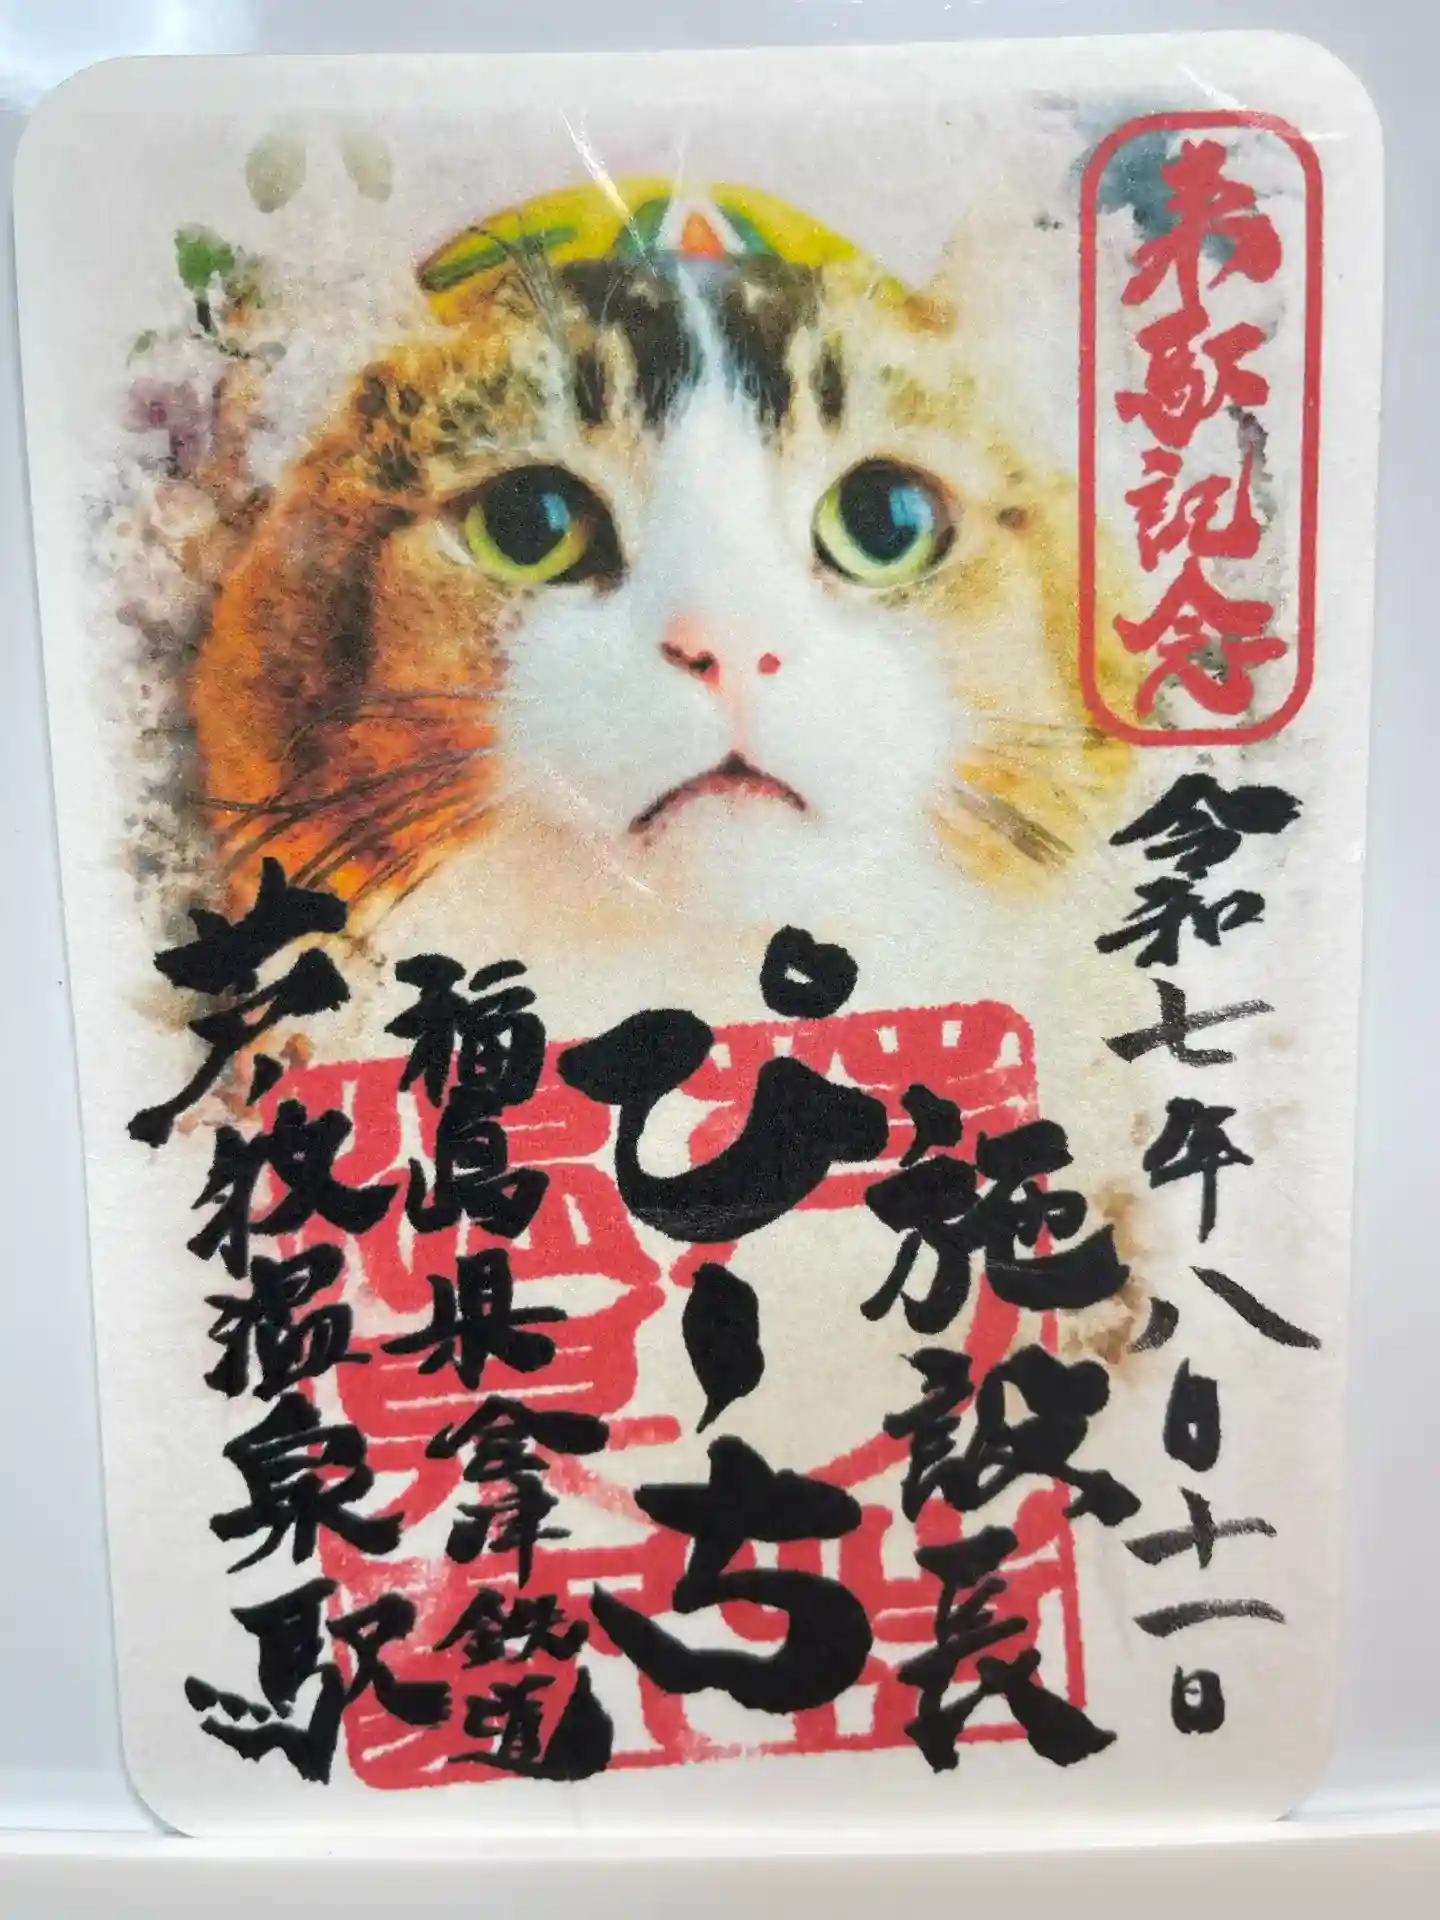 来駅記念
令和七年八日十一日
施設長
ぴーち
福島県會津鉄道
芦ノ牧温泉駅